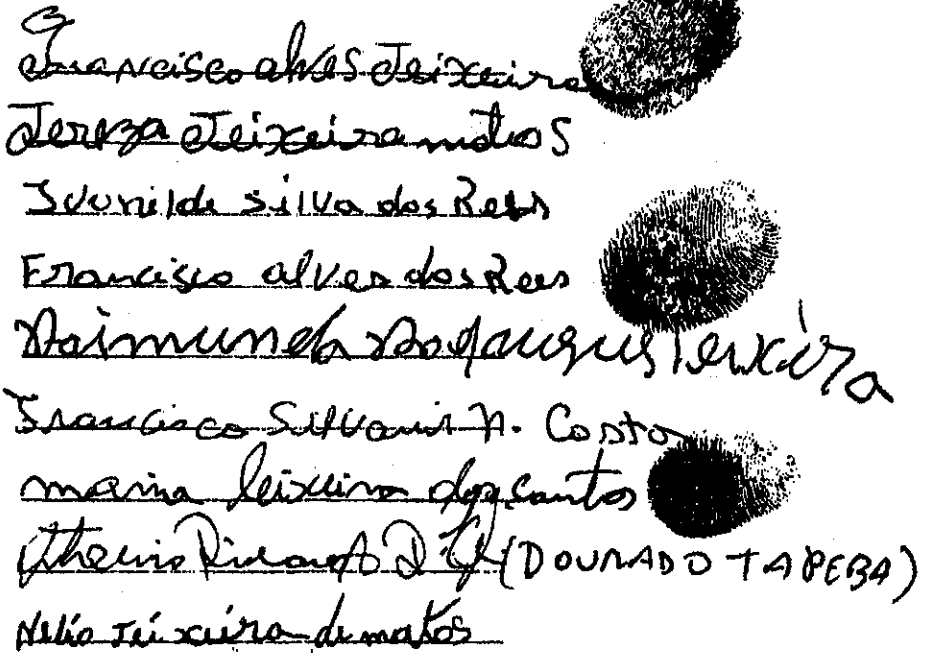 Francisco alves Teixeira
Tereza Teixeira matos
Ivonilde silva dos Reis
Francisco alves dos Reis
Raimunda Teixeira
Francisco Silvanir N. Costa
maria teixeira dos santos
(DOURADO TAPEBA)
Nelio Teixeira de matos